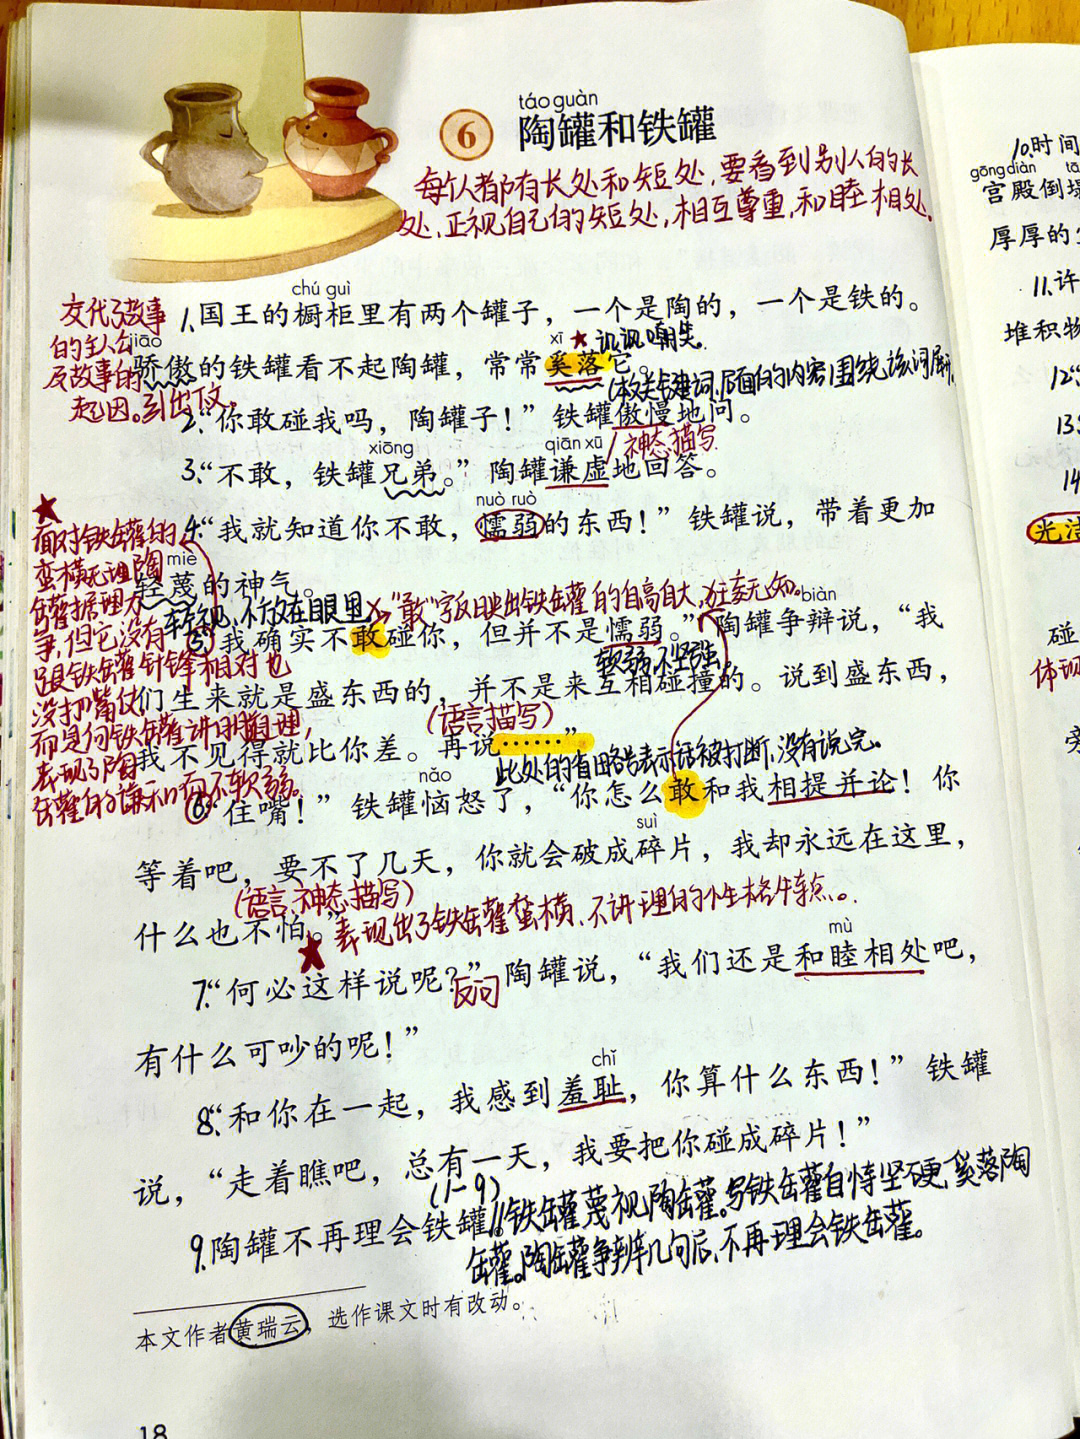 táo guàn
6 陶罐和铁罐
每个人都有长处和短处,要看到别人的长
处,正视自己的短处,相互尊重,和睦相处。
chú guì
1.国王的橱柜里有两个罐子，一个是陶的，一个是铁的。
交代了故事
的主人公
及故事的
起因。引出下文。
jiāo xī ★ 讥讽嘲笑。
骄傲的铁罐看不起陶罐，常常奚落它。
体 关键词,后面的内容围绕该词展开
2.“你敢碰我吗，陶罐子！”铁罐傲慢地问。
神态描写
xiōng qiān xū
3.“不敢，铁罐兄弟。”陶罐谦虚地回答。
nuò ruò
4.“我就知道你不敢，懦弱的东西！”铁罐说，带着更加
miè
轻蔑的神气。
轻视、不放在眼里
“敢”字反映出铁罐的自高自大,狂妄无知。
biàn
⑤“我确实不敢碰你，但并不是懦弱。”陶罐争辩说，“我
软弱,不坚强。
们生来就是盛东西的，并不是来互相碰撞的。说到盛东西，
(语言描写)
我不见得就比你差。再说……”
此处的省略号表示话被打断,没有说完。
★
面对铁罐的
蛮横无理,陶
罐据理力
争,但它没有
跟铁罐针锋相对也
没打嘴仗
而是向铁罐讲明道理,
表现了陶
罐的谦和而不软弱。
nǎo
⑥“住嘴！”铁罐恼怒了，“你怎么敢和我相提并论！你
suì
等着吧，要不了几天，你就会破成碎片，我却永远在这里，
(语言,神态描写)
什么也不怕。”
★表现出了铁罐蛮横、不讲理的性格特点。
mù
7.“何必这样说呢？”陶罐说，“我们还是和睦相处吧，
反问
有什么可吵的呢！”
chǐ
8.“和你在一起，我感到羞耻，你算什么东西！”铁罐
说，“走着瞧吧，总有一天，我要把你碰成碎片！”
(1-9)
9.陶罐不再理会铁罐。
//铁罐蔑视陶罐。写铁罐自恃坚硬,奚落陶
罐。陶罐争辩几句后,不再理会铁罐。
本文作者黄瑞云，选作课文时有改动。
18
10.时间
gōng diàn
宫殿倒塌
厚厚的
11.许
堆积物
12.“
13.
14
光洁
碰
体现